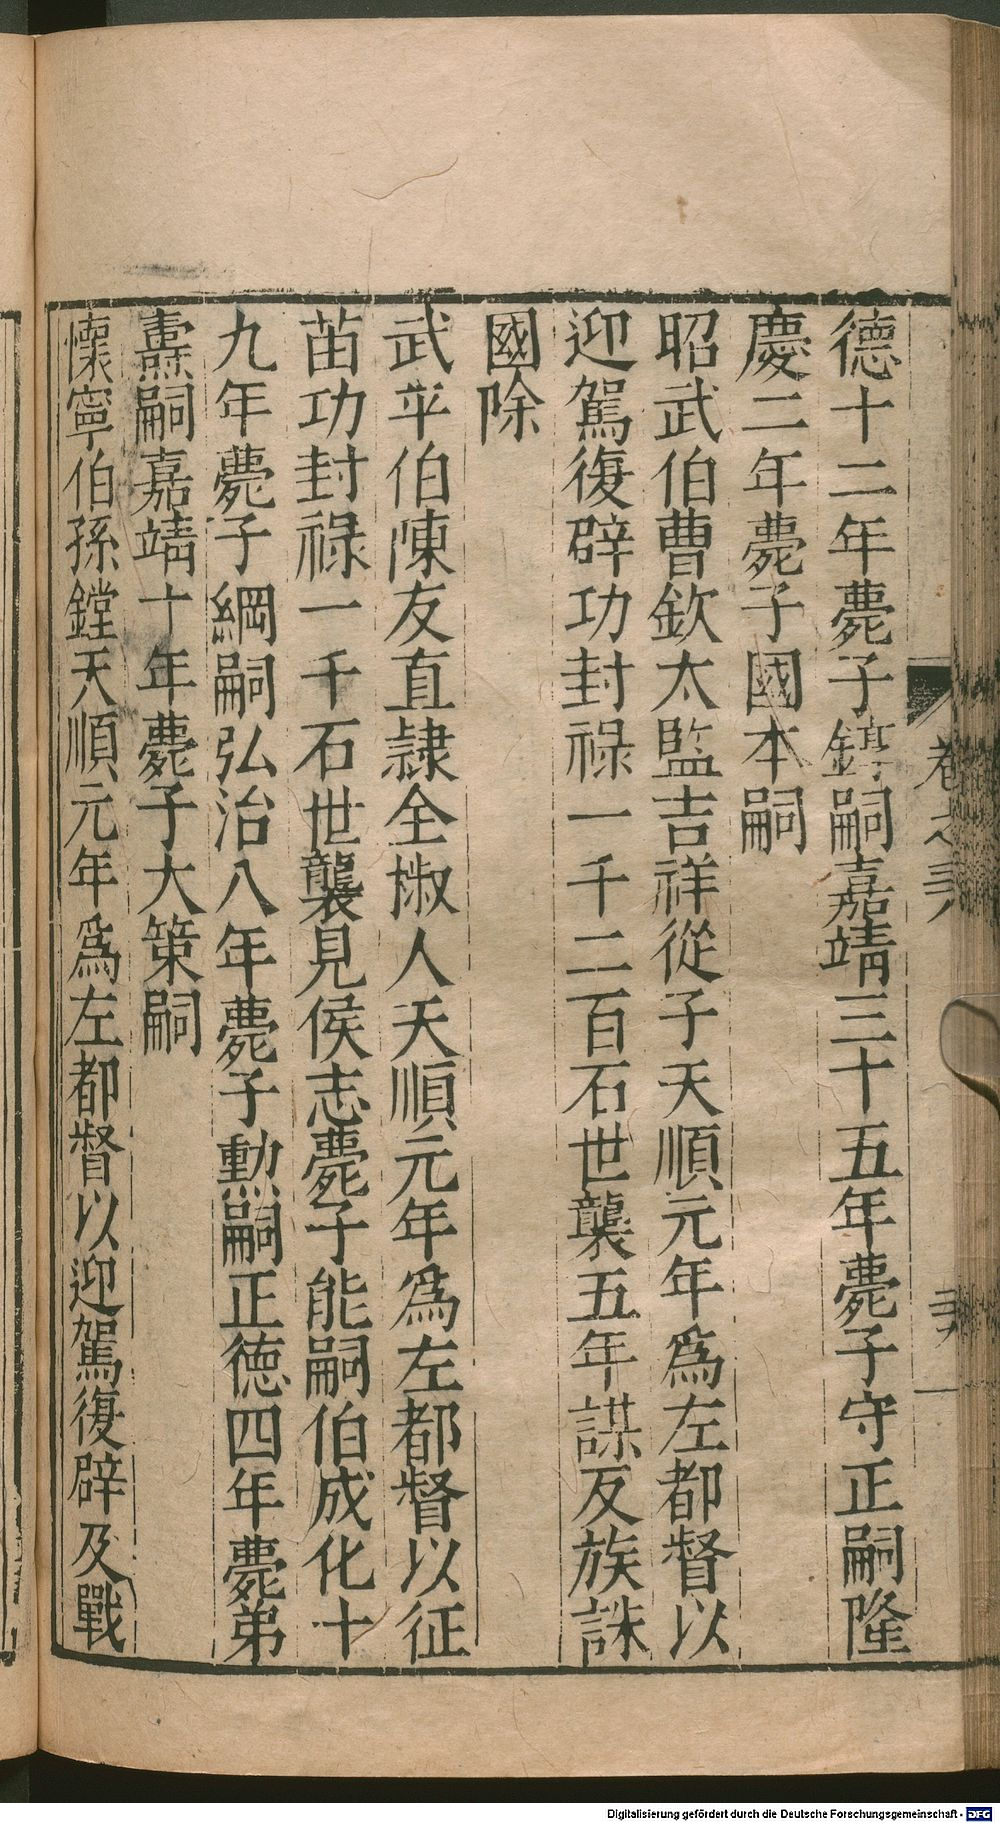 卷之三
三
德十二年薨子鎮嗣嘉靖三十五年薨子守正嗣隆
慶二年薨子國本嗣
昭武伯曹欽太監吉祥從子天順元年爲左都督以
迎駕復辟功封祿一千二百石世襲五年謀反族誅
國除
武平伯陳友直隷全椒人天順元年爲左都督以征
苗功封祿一千石世襲見侯志薨子能嗣伯成化十
九年薨子綱嗣弘治八年薨子勳嗣正德四年薨弟
熹嗣嘉靖十年薨子大策嗣
懷寧伯孫鏜天順元年爲左都督以迎駕復辟及戰
Digitalisierung gefördert durch die Deutsche Forschungsgemeinschaft - DFG